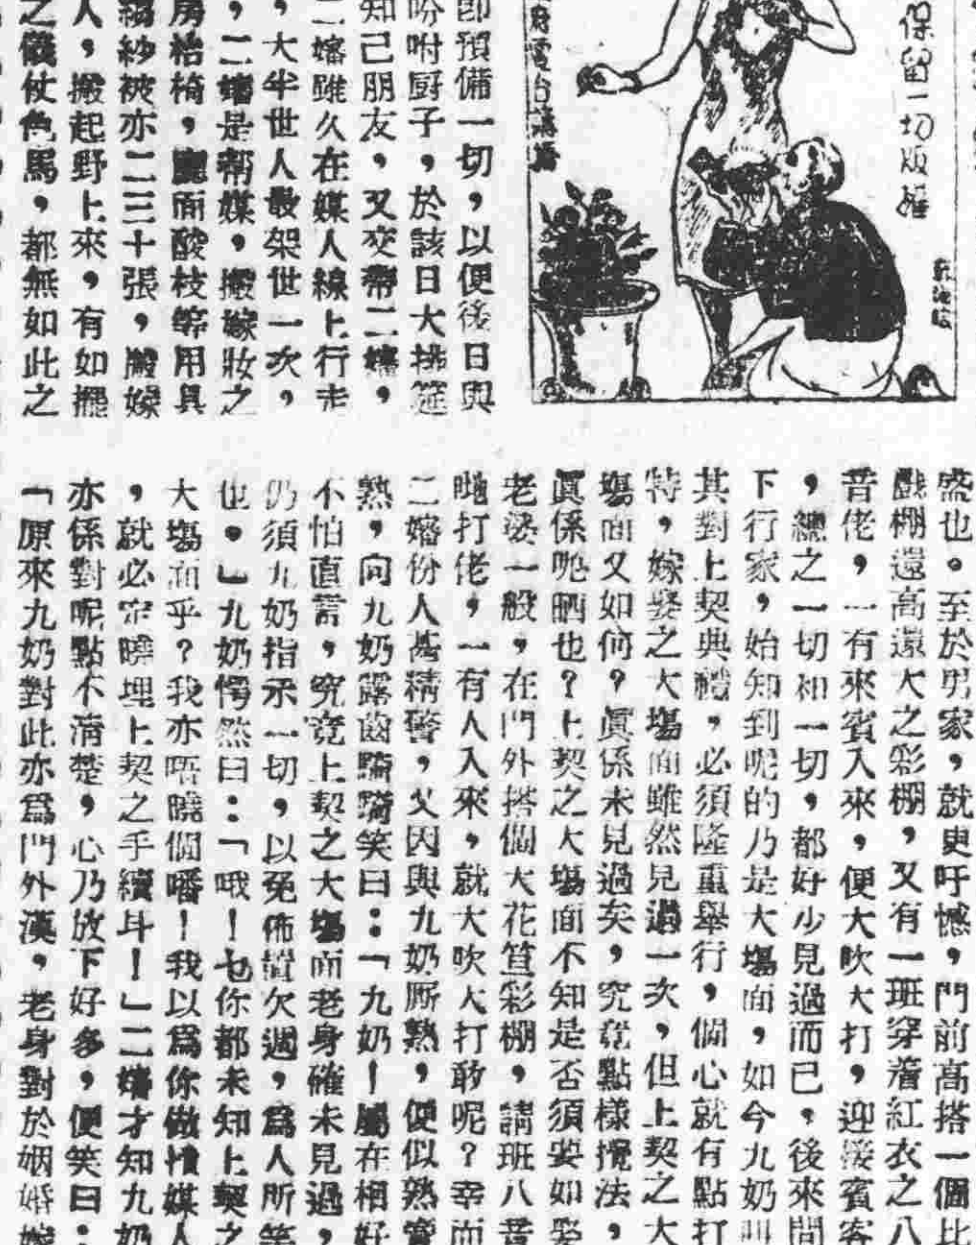 保留一切版權
即預備一切，以便後日與
吩咐厨子，於該日大排筵
知己朋友，又交帶二嬸，
二嬸雖久在媒人線上行走
，大半世人最架世一次，
，二嬸是帮媒，搬嫁妝之
房枱椅，廳面酸枝等用具
縐紗被亦二三十張，搬嫁
人，搬起野上來，有如擺
之儀仗色馬，都無如此之
盛也。至於男家，就更吁憾，門前高搭一個比
戲棚還高還大之彩棚，又有一班穿着紅衣之八
音佬，一有來賓入來，便大吹大打，迎接賓客
，總之一切和一切，都好少見過而已，後來問
下行家，始知到呢的乃是大塲面，如今九奶叫
其對上契典禮，必須隆重舉行，個心就有點打
特，嫁娶之大塲面雖然見過一次，但上契之大
塲面又如何？眞係未見過矣，究竟點樣攪法，
眞係呢晒也？上契之大塲面不知是否須要如娶
老婆一般，在門外搭個大花笪彩棚，請班八音
哋打佬，一有人入來，就大吹大打敢呢？幸而
二嬸份人甚精警，又因與九奶厮熟，便似熟賣
熟，向九奶露齒騎騎笑曰：「九奶！屬在相好
不怕直言，究竟上契之大塲面老身確未見過，
仍須九奶指示一切，以免佈置欠週，爲人所笑
也。」九奶愕然曰：「哦！乜你都未知上契之
大塲面乎？我亦唔曉個噃！我以爲你做慣媒人
，就必定曉埋上契之手續斗！」二嬸才知九奶
亦係對呢點不清楚，心乃放下好多，便笑曰：
「原來九奶對此亦爲門外漢，老身對於姻婚嫁